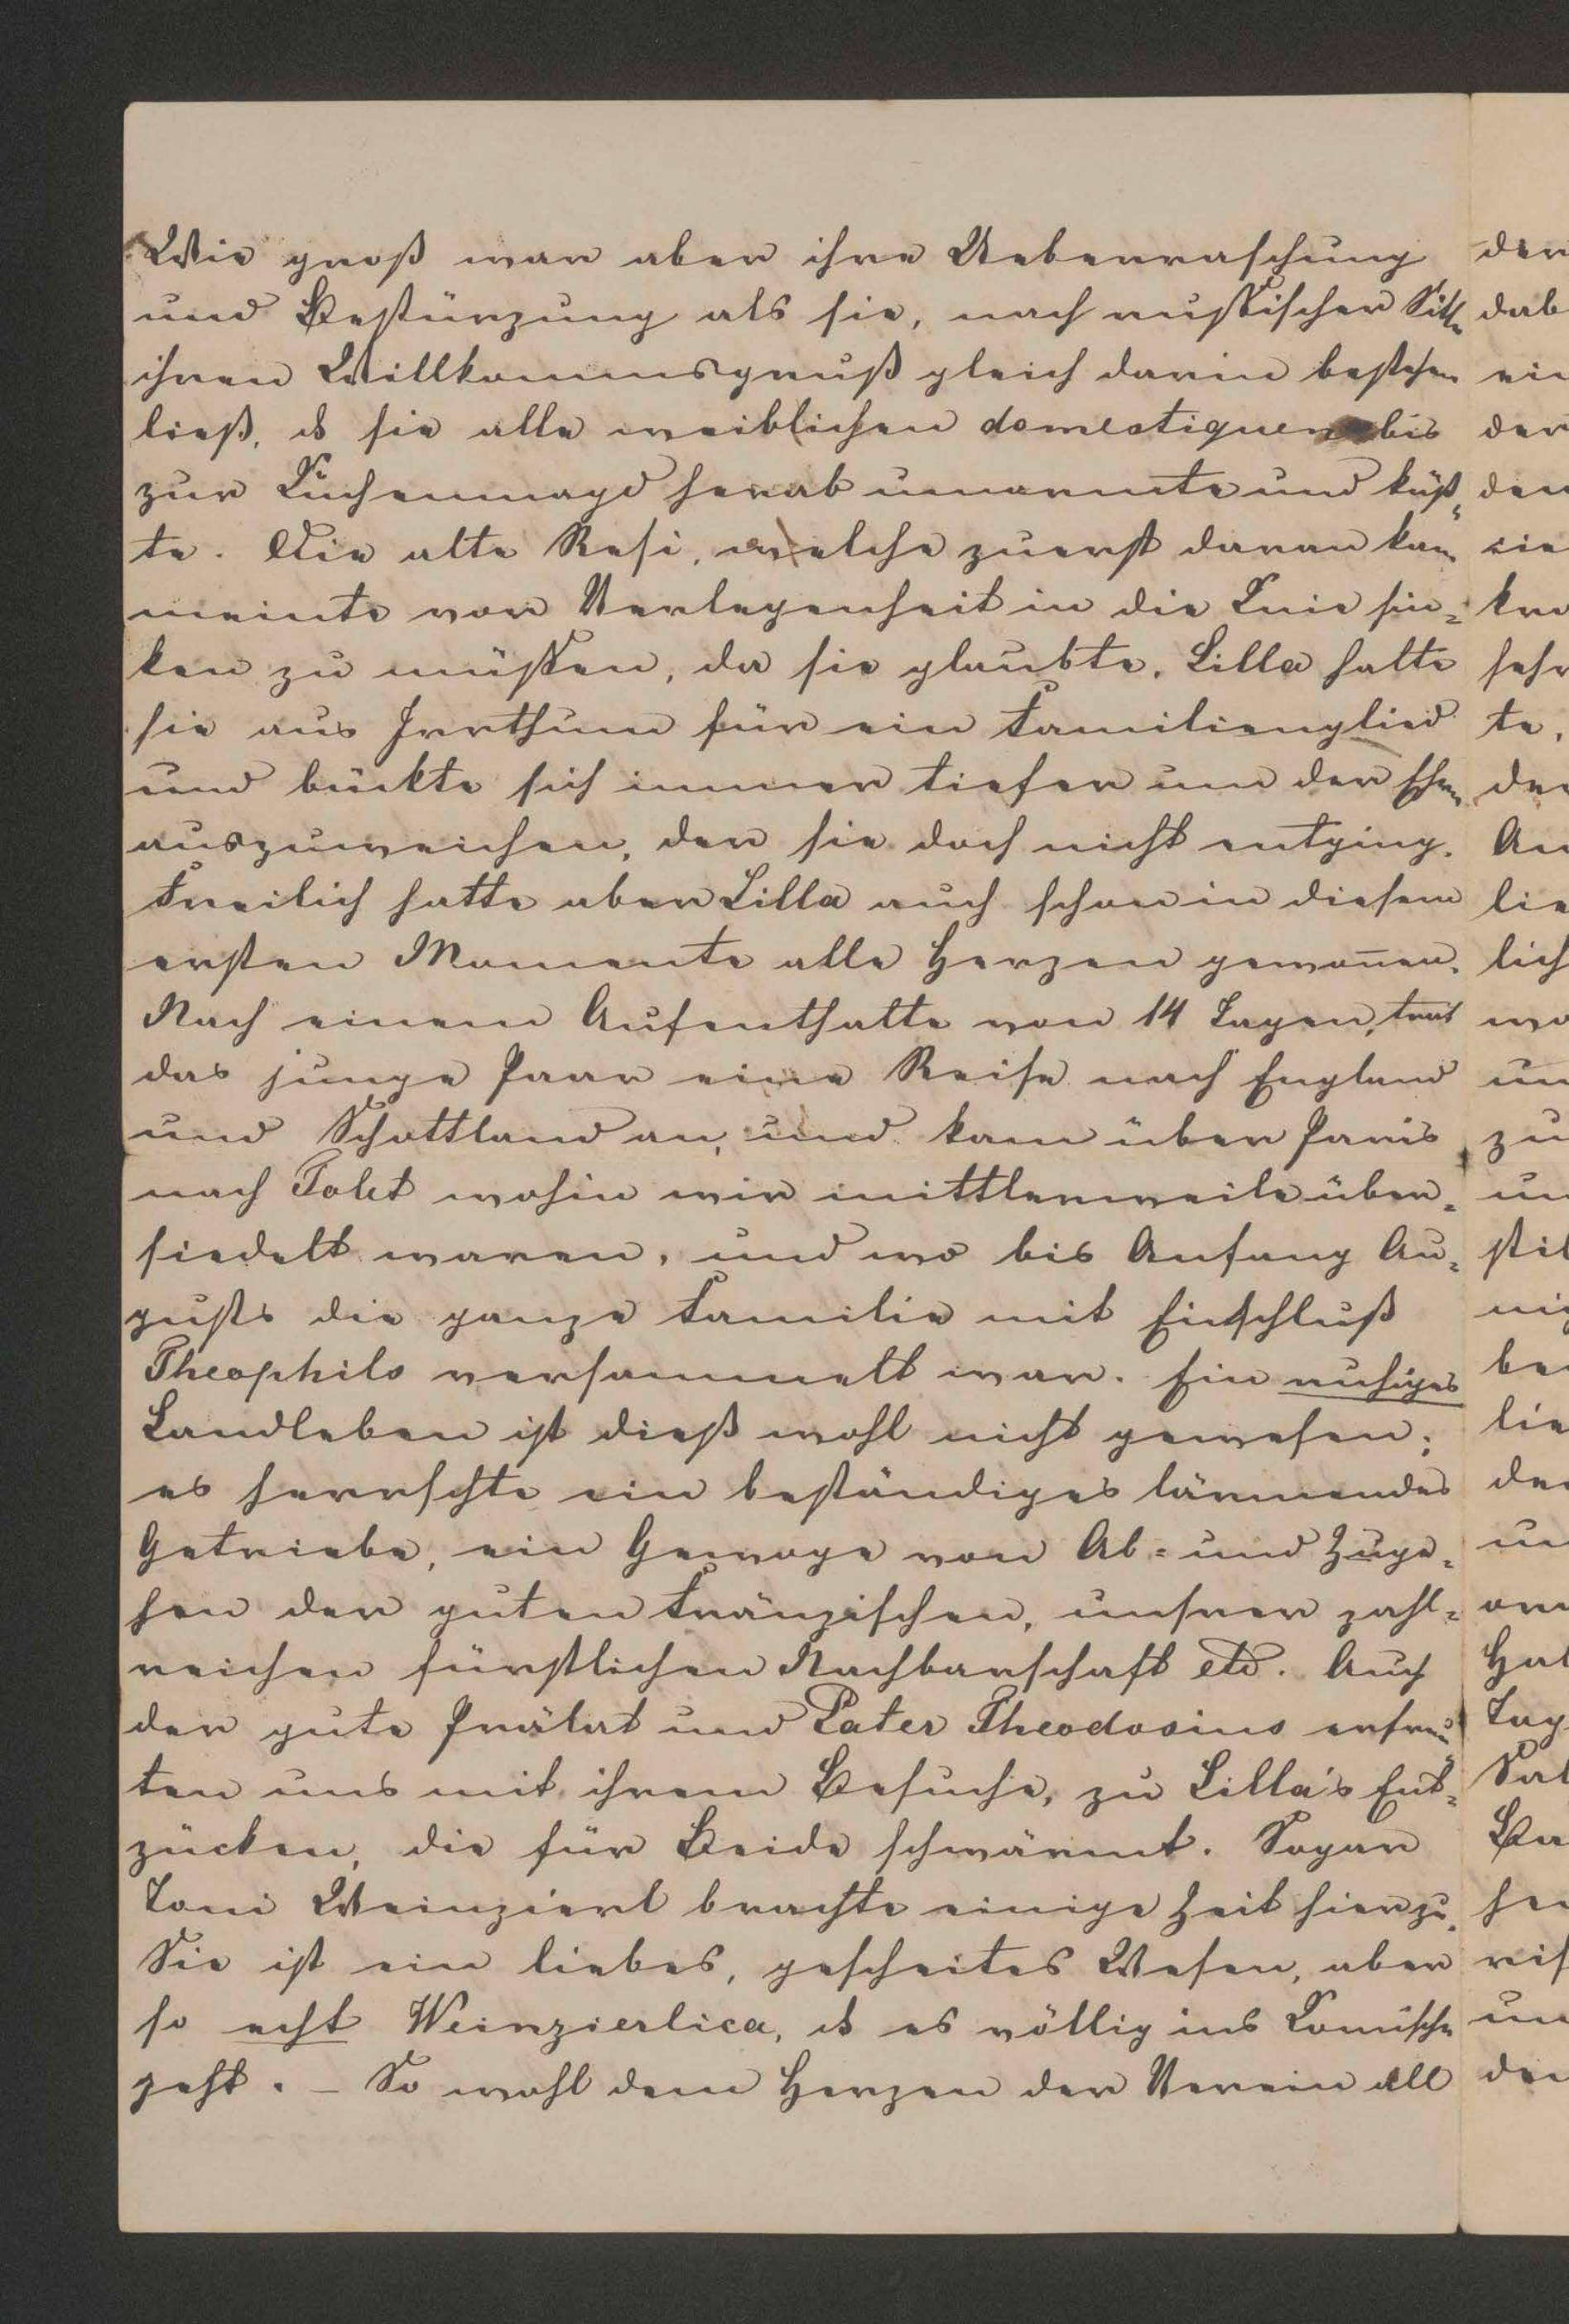 Wie groß war aber ihre Ueberraschung
und Bestürzung als sie, nach russischer Sitte
ihren Willkommsgruß gleich darin bestehen
ließ, dß sie alle weiblichen domestiquen bis
zur Küchenmagd herab umarmte und küß„
te. Die alte Resi, welche zuerst daran kam
meinte vor Verlegenheit in die Knie sin=
ken zu müssen, da sie glaubte, Lilla halte
sie aus Irrthum für ein Familienglied
und bückte sich immer tiefer um der Ehre
auszuweichen, der sie doch nicht entging.
Freilich hatte aber Lilla auch schon in diesem
ersten Momente alle Herzen gewoñen.
Nach einem Aufenthalte von 14 Tagen, trat
das junge Paar eine Reise nach England
und Schottland an, und kam über Paris
nach wohin wir mittlerweile über=
siedelt waren, und wo bis Anfang Au=
gusts die ganze Familie mit Einschluß
Theophils versammelt war. Ein ruhiges
Landleben ist dieß wohl nicht gewesen;
es herrschte ein beständiges lärmendes
Getriebe, ein Gewoge von Ab= und Zuge=
hen der guten Fränzischen, unsrer zahl=
reichen fürstlichen Nachbarschaft etc. Auch
der gute Prälat und Pater Theodosius erfreu„
ten uns mit ihrem Besuche, zu Lilla's Ent=
zücken, die für Beide schwärmt. Sogar
Toni Weinzierl brachte einige Zeit hier zu.
Sie ist ein liebes, gescheites Wesen, aber
so echt Weinzierlica, dß es völlig ins Komische
geht. – So wohl dem Herzen der Verein all
der
dab
ein
der
den
sie
kro
sehr
te,
der
An
lie
lich
wo
un
zu
un
stil
nig
be
lie
de
un
Hal
Tag
Sal
Ba
he
ris
un
de